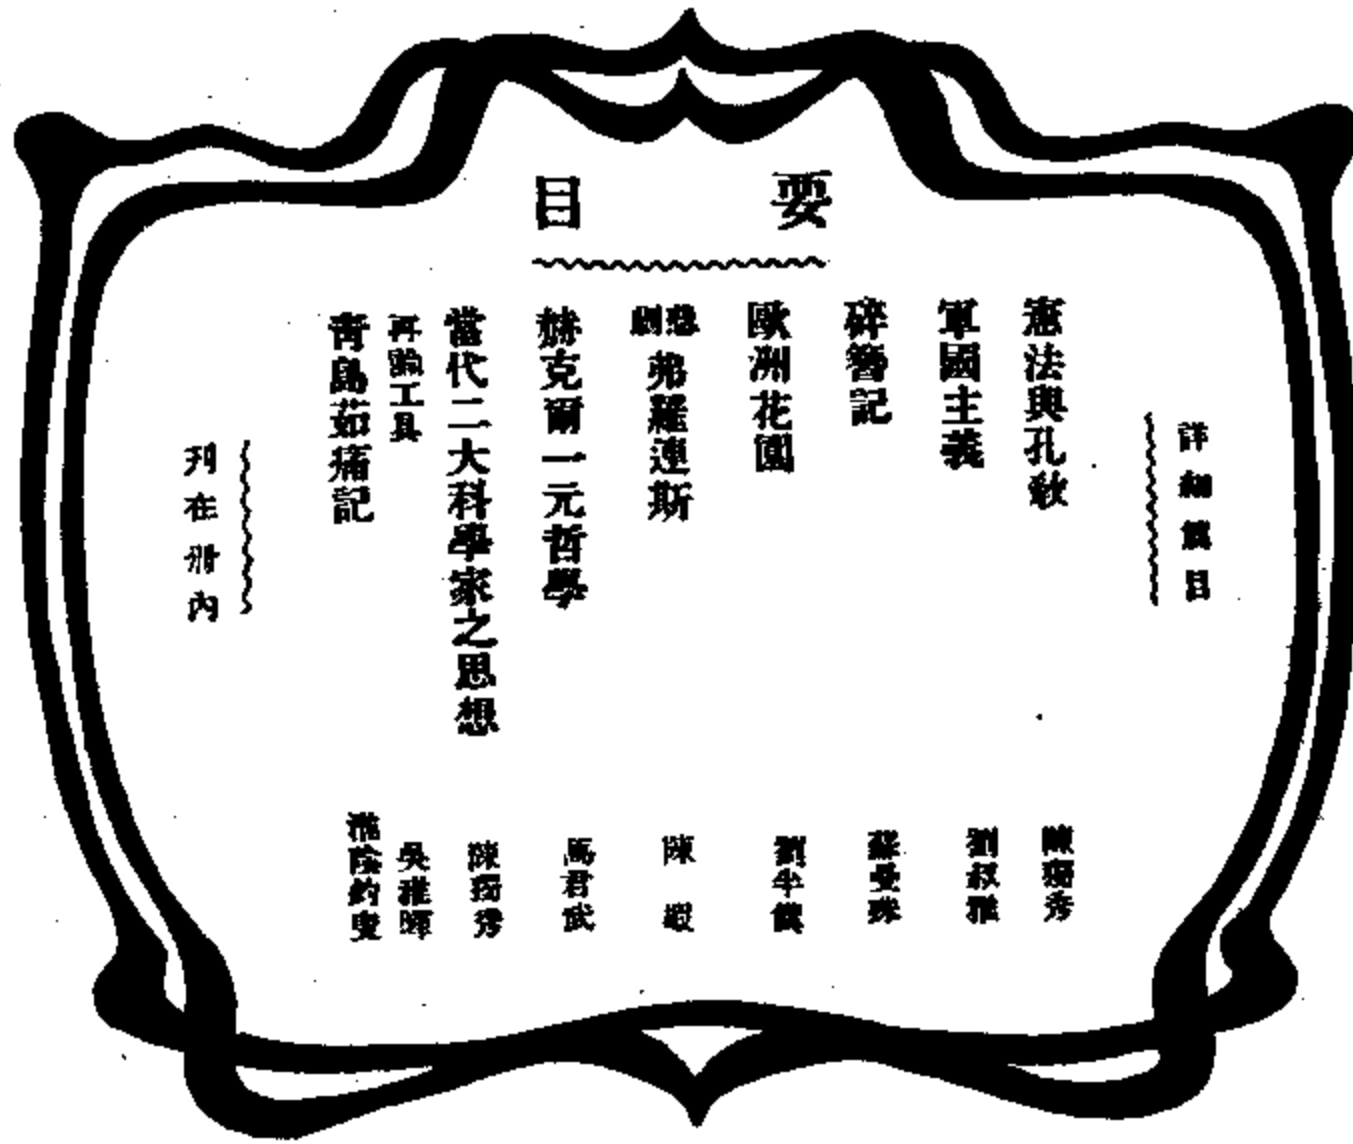 要目
詳細篇目
憲法與孔敎 陳獨秀
軍國主義 劉叔雅
碎簪記 蘇曼殊
歐洲花園 劉半儂
悲劇 弗羅連斯 陳嘏
赫克爾一元哲學 馬君武
當代二大科學家之思想 陳獨秀
再論工具 吳稚暉
青島茹痛記 淮陰釣叟
列在册內